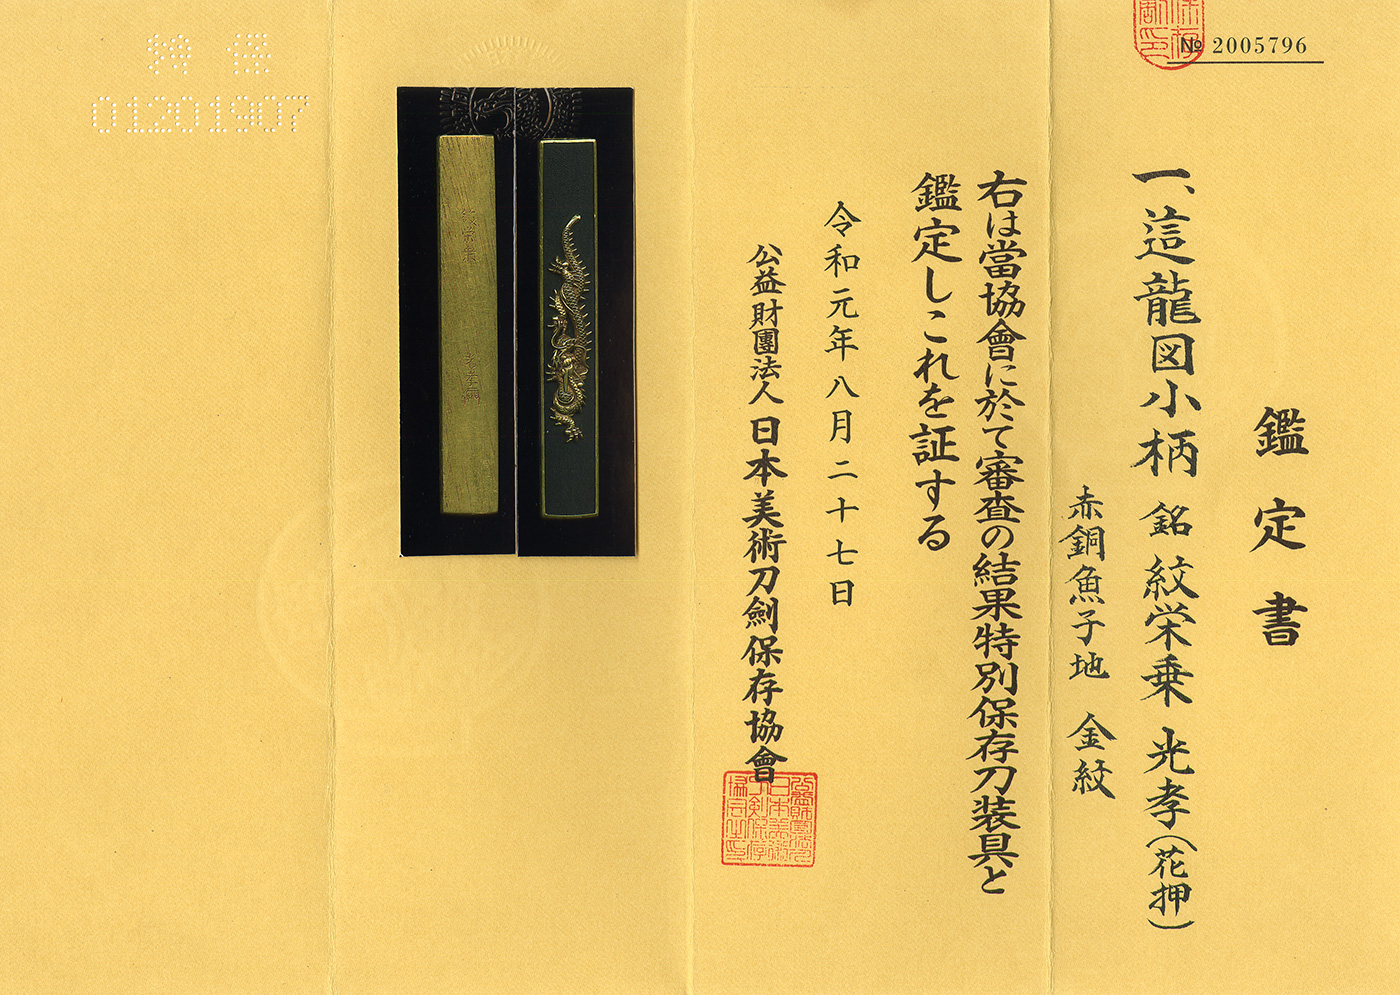 № 2005796
鑑定書
一、這龍図小柄 銘 紋栄乗 光孝(花押)
赤銅魚子地 金紋
右は當協會に於て審査の結果特別保存刀装具と
鑑定しこれを証する
令和元年八月二十七日
公益財團法人 日本美術刀劍保存協會
紋栄乗 光孝
特保
01201907